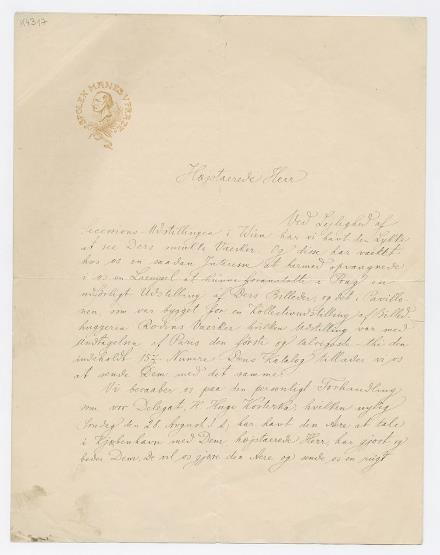 K4317
SPOLEK MANES V PRAZE
Højstaerede Herr
Ved Lejlighed af
Secessions-Udstillingen i Wien har vi havt den Lykke
at see Ders smukke Vaerker. Og disse har vaekket
hos os en saadan Interesse at hermed
i os en Laengsel at kunne foranstalte i Prag en
udførligt Udstilling af Ders Billeder, og det i Pavillo-
nen, som var bygget for en Kollektivudstilling af Billed
huggeren Rodins Vaerker hvilken Udstilling var med
Undtagelse af Paris den første og
indeholdt 157 Numre. Dens Katalog tillader vi os
at sende Dem med det samme.
Vi beraaber os paa den personligt Forhandling
som vor Delegat, H. Hugo Kosterka, hvilken nylig
Søndag den 28. August har havt den Aere at tale
i Kjøbenhavn med Dem højstaerede Herr, har gjort og
beder Dem, de vil os gjøre den Aere og sende os en rigt